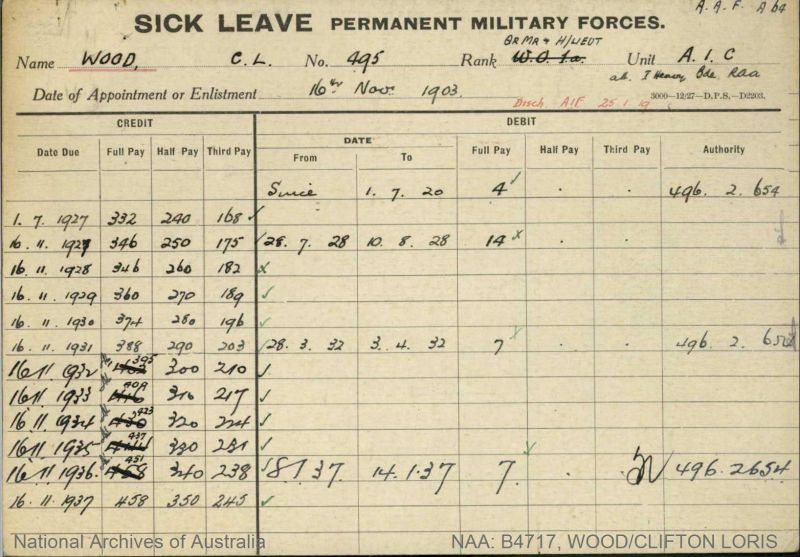 A.A.F. A 64
SICK LEAVE PERMANENT MILITARY FORCES.
QR MR & H/LIEUT
Name WOOD, C. L. No. 495 Rank W.O. 1a. Unit A. I. C
att. 1 Heavy Bde RAA
Date of Appointment or Enlistment 16th Nov. 1903.
Disch. AIF 25.1.19 3000—12/27—D.P.S.—D2203.
CREDIT DEBIT
DATE
Date Due Full Pay Half Pay Third Pay From To Full Pay Half Pay Third Pay Authority
Since 1. 7. 20 4 ✓ . . 496. 2. 654
1. 7. 1927 332 240 168 ✓
16. 11. 1927 346 250 175 ✓ 28. 7. 28 10. 8. 28 14 x . .
16. 11. 1928 346 260 182 x
16. 11. 1929 360 270 189 ✓
16. 11. 1930 374 280 196 ✓
16. 11. 1931 388 290 203 ✓ 28. 3. 32 3. 4. 32 7 . . 496. 2. 654
16 11. 1932 402 395 300 210 ✓
16 11. 1933 416 409 310 217 ✓
16. 11. 1934 430 423 320 224 ✓
16 11. 1935 444 437 330 231 ✓
16 11. 1936 458 451 340 238 ✓ 8 1. 37. 14. 1. 37 7. . . 496. 2654
16. 11. 1937 458 350 245 ✓
National Archives of Australia NAA: B4717, WOOD/CLIFTON LORIS